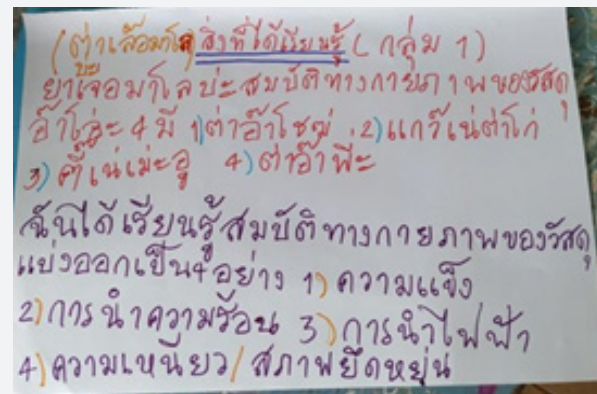 (ตู่าเล้อมาโล) สิ่งที่ได้เรียนรู้ (กลุ่ม 1)
ย่าเจ๊อมาโลบ่ะสมบัติทางกายภาพของวัสดุ
อ๊าโล่ะ 4 มี 1) ต่าอ๊าโช 2) แกว๊เน่ต่าโก่
3) คี๊เน่เม่ะอู 4) ต่าอ๊าพี่ะ
ฉันได้เรียนรู้สมบัติทางกายภาพของวัสดุ
แบ่งออกเป็น 4 อย่าง 1) ความแข็ง
2) การนำความร้อน 3) การนำไฟฟ้า
4) ความเหนียว/ สภาพยืดหยุ่น